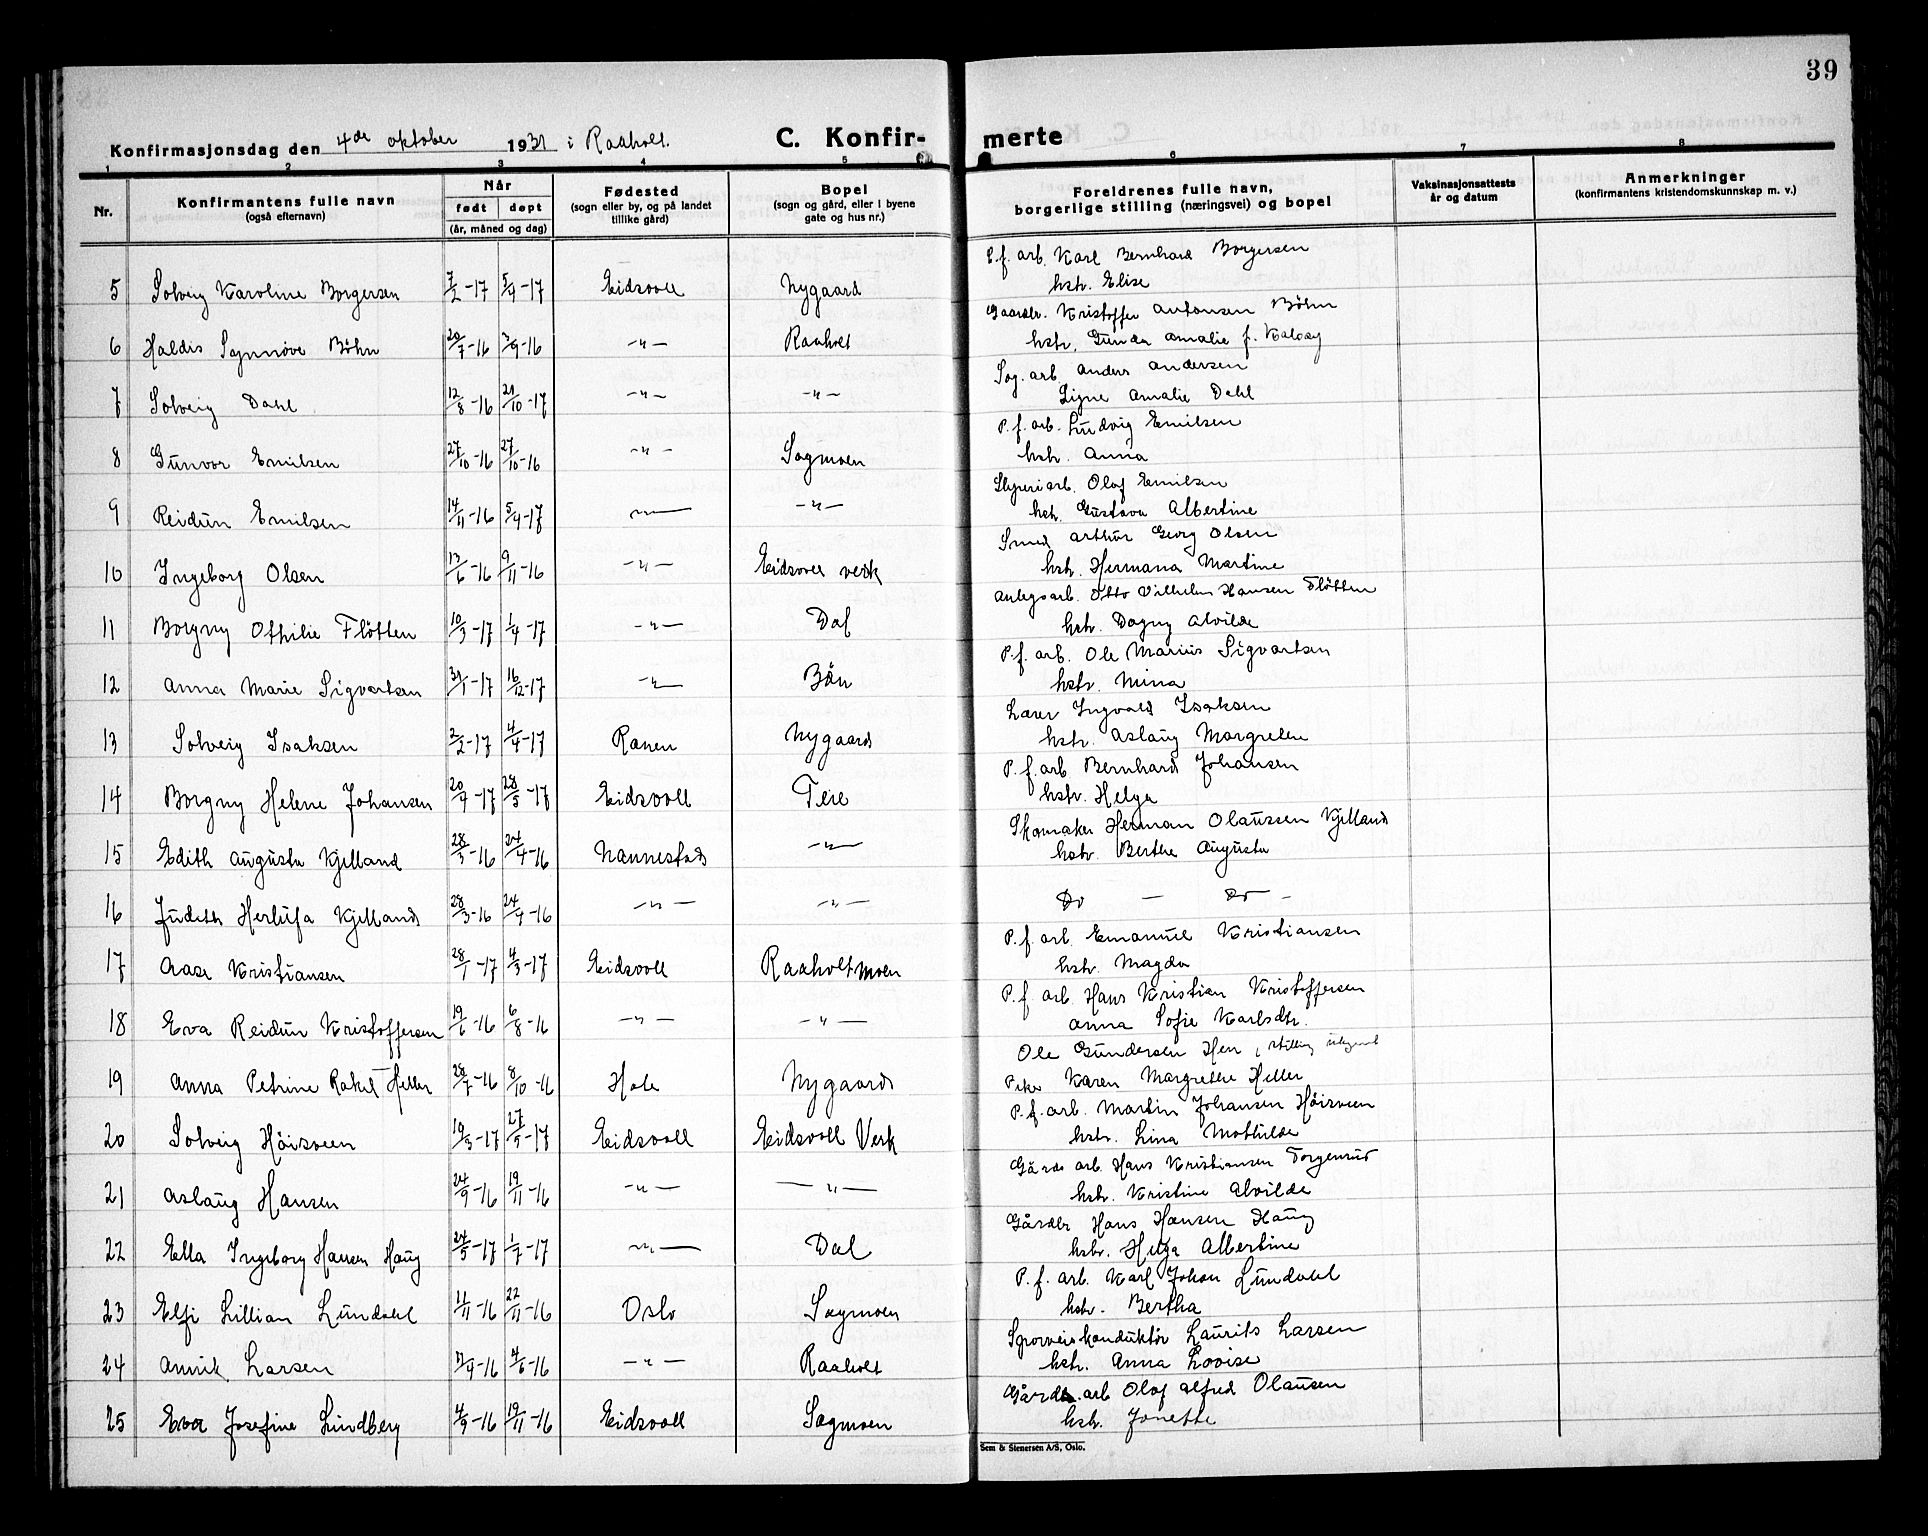 39
Konfirmasjonsdag den 4de oktober 1931 i Raaholt.
C. Konfir-
merte
1 2 3 4 5 6 7 8
Nr.
Konfirmantens fulle navn
(også efternavn)
Når
født døpt
(år, måned og dag)
Fødested
(sogn eller by, og på landet
tillike gård)
Bopel
(sogn og gård, eller i byene
gate og hus nr.)
Foreldrenes fulle navn,
borgerlige stilling (næringsvei) og bopel
Vaksinasjonsattests
år og datum
Anmerkninger
(konfirmantens kristendomskunnskap m. v.)
5 Solveig Karoline Borgersen 7/2-17 5/4-17 Eidsvoll Nygaard
P.f. arb. Karl Bernhard Borgersen
hstr. Elise
6 Haldis Synnøve Böhn 20/7-16 Raaholt
Gaardbr. Kristoffer Antonsen Böhn
hstr. Gunda Amalie f.
7 Solveig Dahl 12/8-16 21/10-17 -"- -"-
Sag. arb. Anders Andersen
Signe Amalie Dahl
8 Gunvor Emilsen 27/10-16 27/10-16 -"- Sagmoen
P.f. arb. Ludvig Emilsen
hstr. Anna
9 Reidun Emilsen 14/11-16 5/4-17 -"- -"-
Sliperiarb. Olaf Emilsen
hstr. Gustava Albertine
10 Ingeborg Olsen 13/6-16 9/11-16 -"- Eidsvoll verk
Smed Arthur Georg Olsen
hstr. Hermana Martine
11 Borgny Othilie Flötten 10/3-17 1/4-17 -"- Dal
Anlegsarb. Otto Vilhelm Hansen Flötten
hstr. Dagny Alvilde
12 Anna Marie Sigvartsen 31/1-17 16/12-17 -"- Bön
P.f. arb. Ole Marius Sigvartsen
hstr. Mina
13 Solveig Isaksen 2/2-17 4/4-17 Ranen Nygaard
Lærer Ingvald Isaksen
hstr. Aslaug Margrethe
14 Borgny Helene Johansen 20/4-17 28/5-17 Eidsvoll Teie
P.f. arb Bernhard Johansen
hstr. Helga
15 Edith Augusta Kjelland 28/3-16 24/4-16 Nannestad -"-
Skomaker Herman Olaussen Kjelland
hstr. Berthe Augusta
16 Judith Herlufa Kjelland 28/3-16 24/4-16 -"- -"-
Do - Do -
17 Aase Kristiansen 28/1-17 4/3-17 Eidsvoll Raaholtmoen
P.f. arb. Emanuel Kristiansen
hstr. Magda
18 Eva Reidun Kristoffersen 19/6-16 6/8-16 -"- -"-
P.f. arb. Hans Kristian Kristoffersen
Anna Sofie Karlsdtr.
19 Anna Petrine Rakel Heller 28/7-16 8/10-16 Hole Nygaard
Ole Gundersen Hen, stilling
Pike Karen Margrethe Heller
20 Solveig Höisveen 19/3-17 27/5-17 Eidsvoll Eidsvoll Verk
P.f. arb. Martin Johansen Höisveen
hstr. Lina Mathilde
21 Aslaug Hansen 24/9-16 19/11-16 -"- -"-
Gårds arb. Hans Kristiansen Torgenrud
hstr. Kristine Alvilde
22 Ella Ingeborg Hansen Haug 24/5-17 1/7-17 -"- Dal
Gårdbr Hans Hansen Haug
hstr. Helga Albertine
23 Elfi Lillian Lundahl 11/11-16 22/11-16 Oslo Sagmoen
P.f. arb. Karl Johan Lundahl
hstr. Bertha
24 Annik Larsen 4/6-16 -"- Raaholt
Sporveiskonduktör Laurits Larsen
hstr. Anna Lovise
25 Eva Josefine Lindberg 4/9-16 19/11-16 Eidsvoll Sagmoen
Gårds. arb Olaf Alfred Olausen
hstr. Jonette
Sem & Stenersen A/S, Oslo.